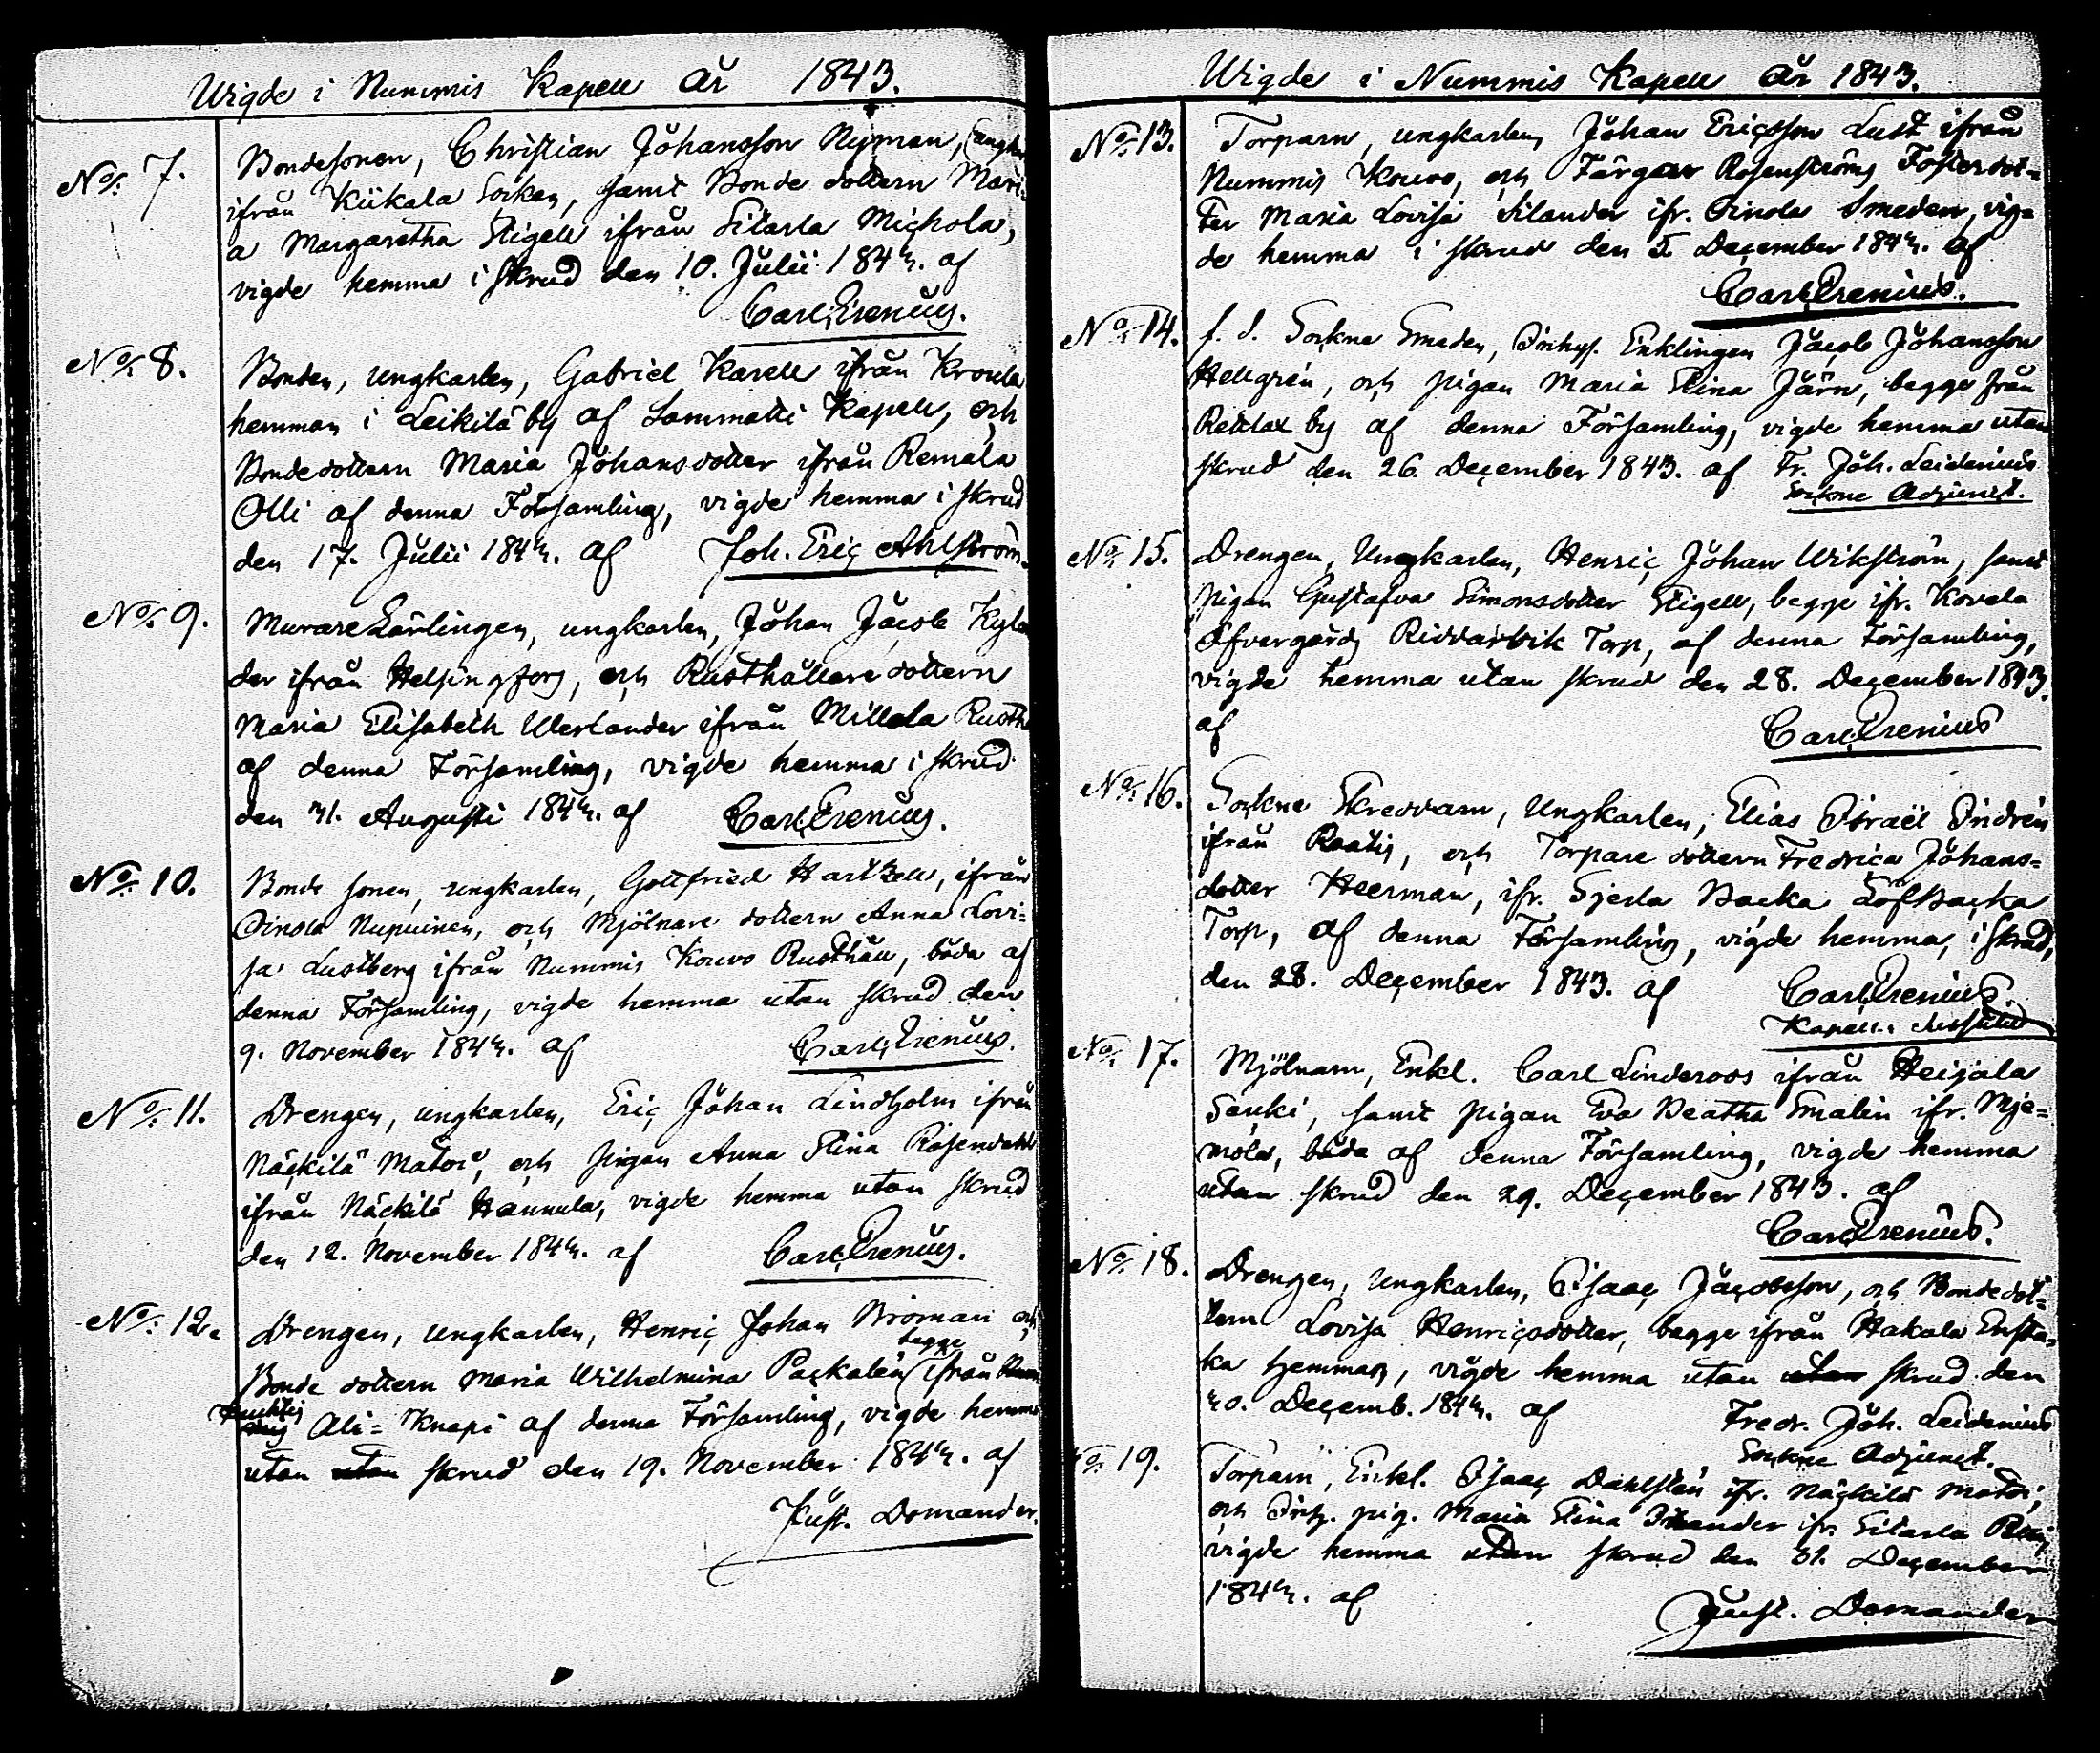 Wigde i Nummis Kapell År 1843.
No: 7. Bondesonen, Christian Johansson Nyman, (ungk.
ifrån Kiikala Socken, samt Bonde dottern Mari-
a Margaretha Stigell ifrån Sitarla Michola,
vigde hemma i skrud den 10. Julii 1843. af
Carl Prenius.
No: 8. Bonden, ungkarlen, Gabriel Karell ifrån Kroula
hemman i Leikilä by af Sammatti Kapell, och
Bondedottern Maria Johansdotter ifrån Remala
Olli af denna Församling, vigde hemma i skrud
den 17. Julii 1843. af Joh. Eric Ahlström.
No: 9. Murare Lärlingen, ungkarlen, Johan Jacob Kylan
der ifrån Helsingfors, och Rusthållare dottern
Maria Elisabeth Ulerlander ifrån Millola Rusth.
af denna Församling, vigde hemma i skrud
den 31. Augusti 1843. af Carl Prenius.
No: 10. Bonde sonen, ungkarlen, Gottfried Hartzell, ifrån
Oinola Nupuinen, och Mjölnare dottern Anna Lovi=
sa Lustberg ifrån Nummis Kouvo Rusthåll, båda af
denna Församling, vigde hemma utan skrud den
9. November 1843. af Carl Prenius.
No: 11. Drengen, ungkarlen, Eric Johan Lindholm ifrån
Näckilä Matoi, och pigan Anna Stina Rosendahl
ifrån Näckilä Hannula, vigde hemma utan skrud
den 12. November 1843. af Carl Prenius.
No: 12. Drengen, ungkarlen, Henric Johan Broman och
Bonde dottern Maria Wilhelmina Packalén (begge ifrån
Ali=Knapi af denna Församling, vigde hemma
utan utan skrud den 19. November 1843. af
Just. Domander.
Wigde i Nummis Kapell År 1843.
No: 13. Torparn, ungkarlen, Johan Ericsson Lust ifrån
Nummis Kouvo, och Färgar Rosenströms Fosterdot=
ter Maria Lovisa Silander ifr. Oinola Smeden, vig=
de hemma i skrud den 5. December 1843. af
Carl Prenius.
No: 14. f. d. Sockne Smeden, Inhys. Enklingen Jacob Johansson
Hellgrén, och pigan Maria Stina Järn, begge från
Retlax by af denna Församling, vigde hemma utan
skrud den 26. December 1843. af Fr. Joh. Leidenius
Sockne Adjunct.
No: 15. Drengen, Ungkarlen, Henric Johan Wikström, samt
pigan Gustafva Simonsdotter Stigell, begge ifr. Kovela
Öfvergårds Riddarvik Torp, af denna Församling,
vigde hemma utan skrud den 28. December 1843.
af Carl Prenius
No: 16. Sockne Skreddarn, Ungkarlen, Elias Israël Indrén
ifrån Raatis, och Torpare dottern Fredrica Johans=
dotter Heerman, ifr. Sjerla Backa Löfbacka
Torp, af denna Församling, vigde hemma, i skrud,
den 28. December 1843. af Carl Prenius.
Kapell.
No: 17. Mjölnarn, Enkl. Carl Linderoos ifrån Heijala
Sauki, samt pigan Eva Beatha Smalin ifr. Mje=
mola, båda af denna Församling, vigde hemma
utan skrud den 29. December 1843. af
Carl Prenius.
No: 18. Drengen, Ungkarlen, Isaac Jacobsson, och Bondedot=
tern Lovisa Henricsdotter, begge ifrån Hakala Ensta=
ka hemman, vigde hemma utan utan skrud den
30. Decemb. 1843. af Fredr. Joh. Leidenius
Sockne Adjunct.
No: 19. Torparn, Enkl. Isaac Dahlstén ifr. Näckilä Matoi,
och Inh. pig. Maria Stina ifr. Sitarla
vigde hemma utan skrud den 31. December
1843. af
Just. Domander